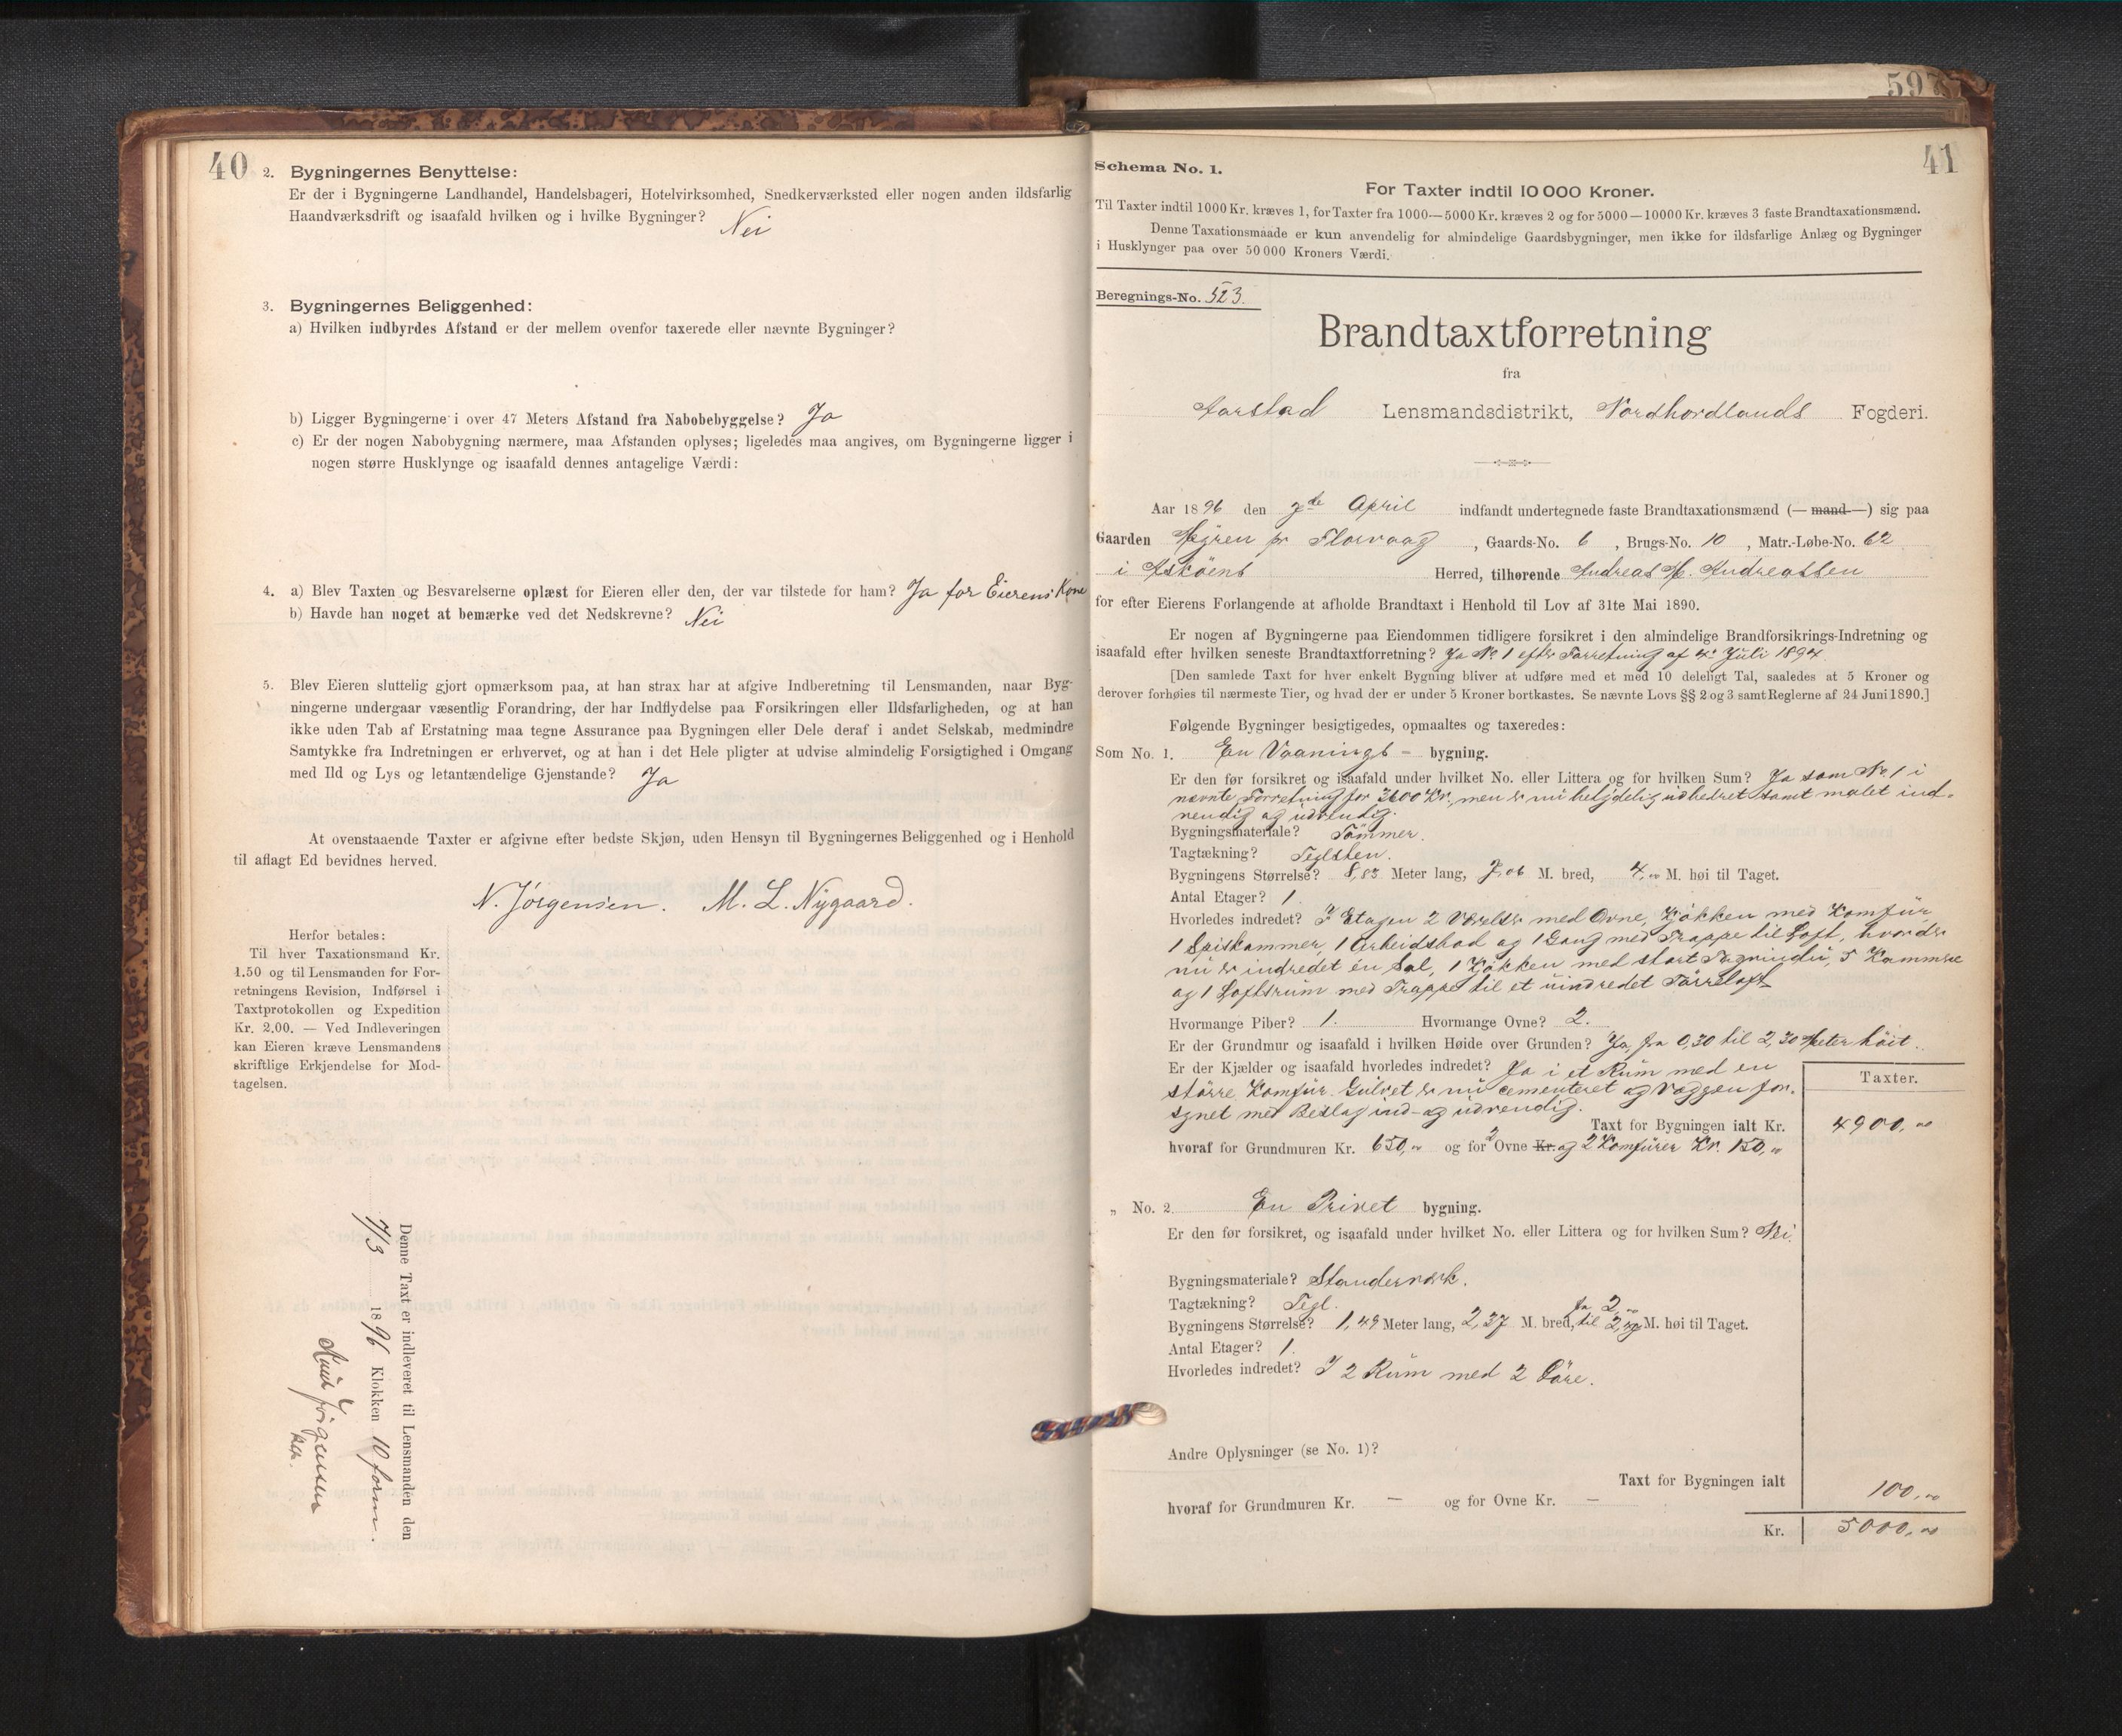 40
2. Bygningernes Benyttelse:
Er der i Bygningerne Landhandel, Handelsbageri, Hotelvirksomhed, Snedkerværksted eller nogen anden ildsfarlig
Haandværksdrift og isaafald hvilken og i hvilke Bygninger? Nei
3. Bygningernes Beliggenhed:
a) Hvilken indbyrdes Afstand er der mellem ovenfor taxerede eller nævnte Bygninger?
b) Ligger Bygningerne i over 47 Meters Afstand fra Nabobebyggelse? Ja
c) Er der nogen Nabobygning nærmere, maa Afstanden oplyses; ligeledes maa angives, om Bygningerne ligger i
nogen større Husklynge og isaafald dennes antagelige Værdi:
4. a) Blev Taxten og Besvarelserne oplæst for Eieren eller den, der var tilstede for ham? Ja for Eierens Kone
b) Havde han noget at bemærke ved det Nedskrevne? Nei
5. Blev Eieren sluttelig gjort opmærksom paa, at han strax har at afgive Indberetning til Lensmanden, naar Byg-
ningerne undergaar væsentlig Forandring, der har Indflydelse paa Forsikringen eller Ildsfarligheden, og at han
ikke uden Tab af Erstatning maa tegne Assurance paa Bygningen eller Dele deraf i andet Selskab, medmindre
Samtykke fra Indretningen er erhvervet, og at han i det Hele pligter at udvise almindelig Forsigtighed i Omgang
med Ild og Lys og letantændelige Gjenstande? Ja
At ovenstaaende Taxter er afgivne efter bedste Skjøn, uden Hensyn til Bygningernes Beliggenhed og i Henhold
til aflagt Ed bevidnes herved.
N. Jørgensen. M. L. Nygaard.
Herfor betales:
Til hver Taxationsmand Kr.
1.50 og til Lensmanden for For-
retningens Revision, Indførsel i
Taxtprotokollen og Expedition
Kr. 2.00. — Ved Indleveringen
kan Eieren kræve Lensmandens
skriftlige Erkjendelse for Mod-
tagelsen.
Denne Taxt er indleveret til Lensmanden den
7/3 1896 Klokken 10 form.
Jörgensen
597
41
Schema No. 1.
For Taxter indtil 10 000 Kroner.
Til Taxter indtil 1000 Kr. kræves 1, for Taxter fra 1000—5000 Kr. kræves 2 og for 5000—10000 Kr. kræves 3 faste Brandtaxationsmænd.
Denne Taxationsmaade er kun anvendelig for almindelige Gaardsbygninger, men ikke for ildsfarlige Anlæg og Bygninger
i Husklynger paa over 50 000 Kroners Værdi.
Beregnings-No. 523.
Brandtaxtforretning
fra
Aarstad Lensmandsdistrikt, Nordhordlands Fogderi.
Aar 1896 den 2de April indfandt undertegnede faste Brandtaxationsmænd (— mand —) sig paa
Gaarden Hegren pr Florvaag, Gaards-No. 6, Brugs-No. 10, Matr.-Løbe-No. 62
i Asköens Herred, tilhørende Andreas H. Andreassen
for efter Eierens Forlangende at afholde Brandtaxt i Henhold til Lov af 31te Mai 1890.
Er nogen af Bygningerne paa Eiendommen tidligere forsikret i den almindelige Brandforsikrings-Indretning og
isaafald efter hvilken seneste Brandtaxtforretning? Ja No 1 efter Forretning af 4. Juli 1894.
[Den samlede Taxt for hver enkelt Bygning bliver at udføre med et med 10 deleligt Tal, saaledes at 5 Kroner og
derover forhøies til nærmeste Tier, og hvad der er under 5 Kroner bortkastes. Se nævnte Lovs §§ 2 og 3 samt Reglerne af 24 Juni 1890.]
Følgende Bygninger besigtigedes, opmaaltes og taxeredes:
Som No. 1. En Vaanings- bygning.
Er den før forsikret og isaafald under hvilket No. eller Littera og for hvilken Sum? Ja som No. 1 i
nævnte Forretning for 3600 Kr., men er nu betydelig udbedret samt malet ind-
vendig og udvendig.
Bygningsmateriale? Tömmer.
Tagtækning? Teglsten.
Bygningens Størrelse? 8,83 Meter lang, 7,06 M. bred, 4,00 M. høi til Taget.
Antal Etager? 1.
Hvorledes indredet? I Etagen 2 Værelser med Ovne, Kjökken med Komfür,
1 Spiskammer, 1 Arbeidsbod og 1 Gang med Trappe til Loft, hvorder
nü er indredet én Sal, 1 Kjökken med stort Tagvindü, 5 Kammere
og 1 Loftsrüm med Trappe til et üindredet Törreloft
Hvormange Piber? 1. Hvormange Ovne? 2.
Er der Grundmur og isaafald i hvilken Høide over Grunden? Ja, fra 0,30 til 2,30 Meter höit.
Er der Kjælder og isaafald hvorledes indredet? Ja i et Rüm med en
större Komfür. Gülvet er nü cementeret og Væggen for-
synet med Beslag ind- og üdvendig.
Taxter.
Taxt for Bygningen ialt Kr. 4900,00
hvoraf for Grundmuren Kr. 650,00 og for 2 Ovne Kr. og 2 Komfürer Kr. 150,00
„ No. 2 En Privet bygning.
Er den før forsikret, og isaafald under hvilket No. eller Littera og for hvilken Sum? Nei.
Bygningsmateriale? Standerværk.
Tagtækning? Tegl.
Bygningens Størrelse? 1,49 Meter lang, 2,37 M. bred, fra 2,00 til 2,40 M. høi til Taget.
Antal Etager? 1.
Hvorledes indredet? I 2 Rüm med 2 Döre.
Andre Oplysninger (se No. 1)?
Taxt for Bygningen ialt 100,00
hvoraf for Grundmuren Kr. — og for Ovne Kr. —
Kr. 5000,00